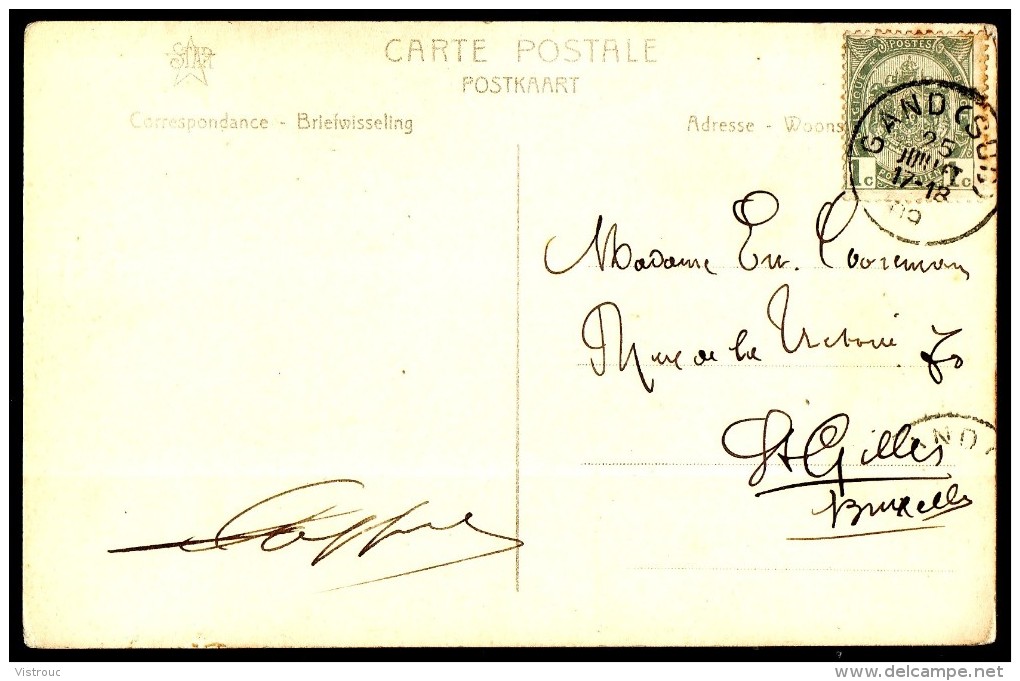 STAR
CARTE POSTALE
POSTKAART
Correspondance - Briefwisseling
Adresse - Woons
POSTES
1c 1c
GAND (SUD)
25
17-18
09
Madame Em. Cooreman
Rue de la Victoire 70
St Gilles
Bruxelles
AND
Vistrouc
delcampe.net